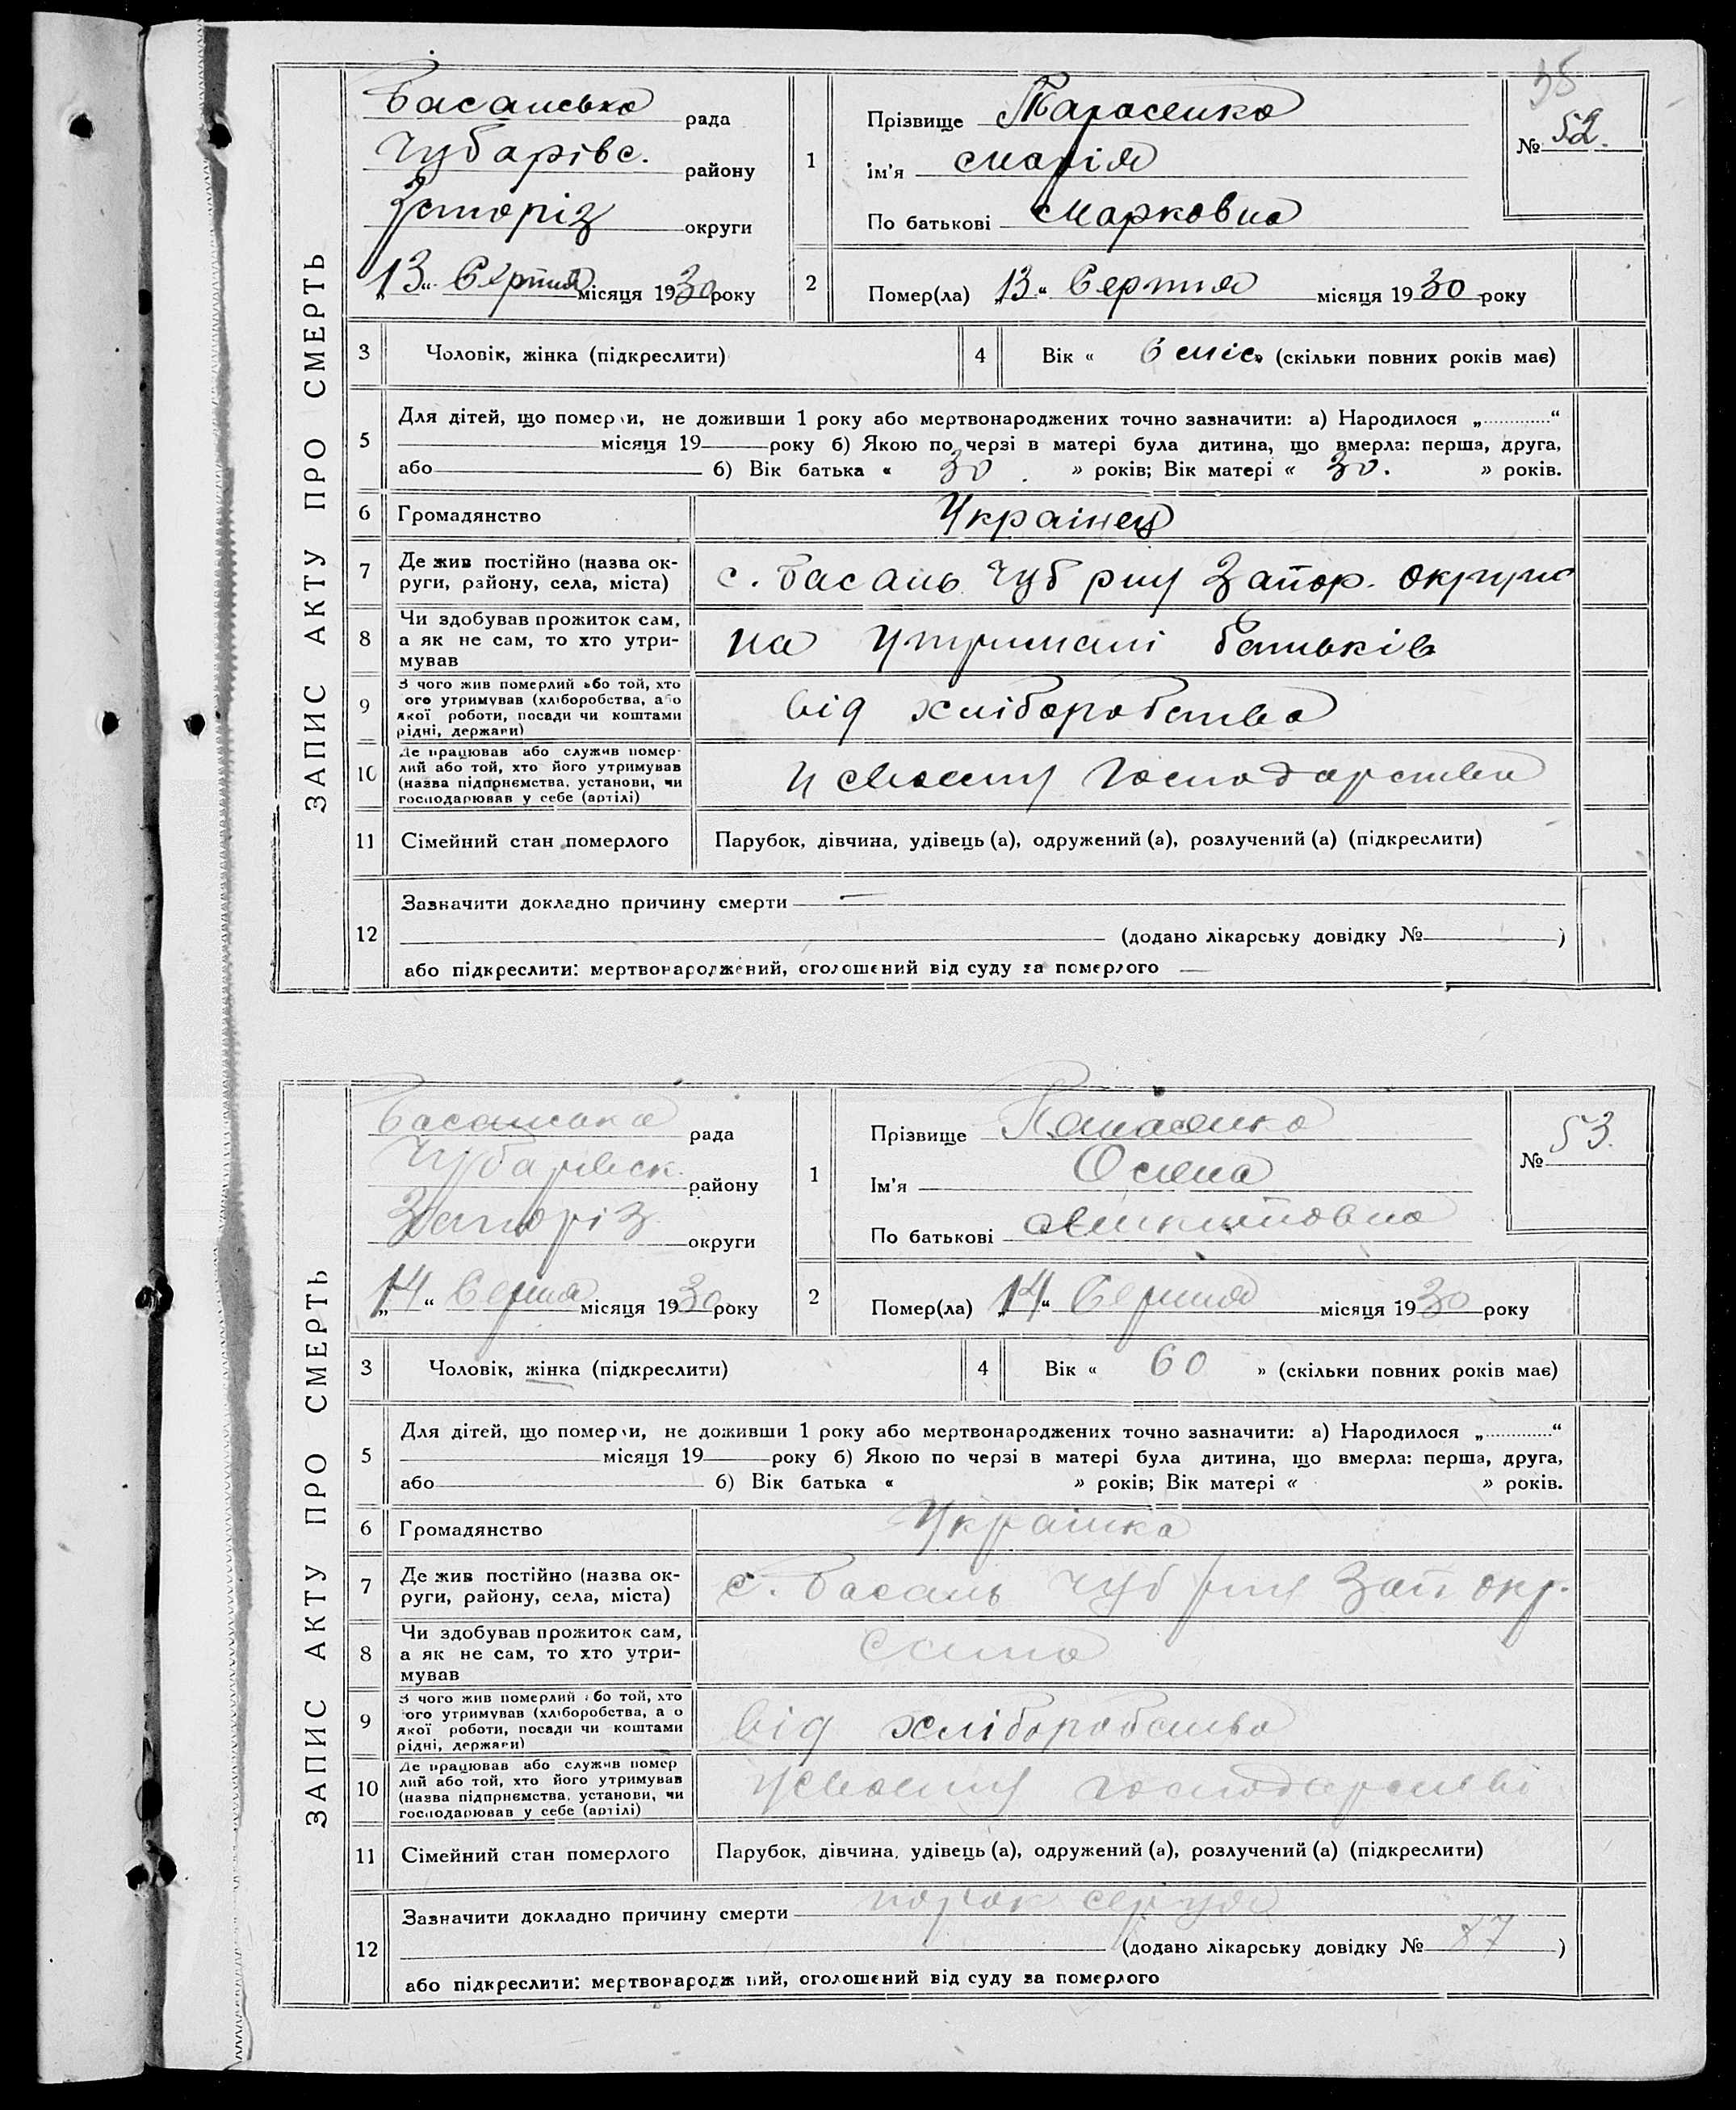 38
ЗАПИС АКТУ ПРО СМЕРТЬ
Басанська рада
Чубарівс. району
Запоріз округи
„13“ Серпня місяця 1930 року
1
Прізвище Тарасенко
ім'я Марія
По батькові Марковна
№ 52.
2
Помер(ла) „13“ Серпня місяця 1930 року
3 Чоловік, жінка (підкреслити)
4 Вік « 6 міс » (скільки повних років має)
5
Для дітей, що померли, не доживши 1 року або мертвонароджених точно зазначити: а) Народилося „ “
місяця 19 року б) Якою по черзі в матері була дитина, що вмерла: перша, друга,
або б) Вік батька « 30 » років; Вік матері « 30. » років.
6 Громадянство Украінец
7 Де жив постійно (назва ок-
руги, району, села, міста) с. Басань Чуб р-ну Запор. округи
8 Чи здобував прожиток сам,
а як не сам, то хто утри-
мував на утримані батьків
9 З чого жив померлий або той, хто
ого утримував (хліборобства, або
якої роботи, посади чи коштами
рідні, держави) від хліборобства
10 Де працював або служив помер-
лий або той, хто його утримував
(назва підприємства, установи, чи
господарював у себе (артілі) у своему господарстви
11 Сімейний стан померлого Парубок, дівчина, удівець (а), одружений (а), розлучений (а) (підкреслити)
12
Зазначити докладно причину смерти —
(додано лікарську довідку № )
або підкреслити: мертвонароджений, оголошений від суду за померлого —
ЗАПИС АКТУ ПРО СМЕРТЬ
Басанська рада
Чубарівск. району
Запоріз округи
„14“ Серпня місяця 1930 року
1
Прізвище Панасенко
Ім'я
По батькові Микитовна
№ 53.
2
Помер(ла) „14“ Серпня місяця 1930 року
3 Чоловік, жінка (підкреслити)
4 Вік « 60 » (скільки повних років має)
5
Для дітей, що померли, не доживши 1 року або мертвонароджених точно зазначити: а) Народилося „ “
місяця 19 року б) Якою по черзі в матері була дитина, що вмерла: перша, друга,
або б) Вік батька « » років; Вік матері « » років.
6 Громадянство Украінка
7 Де жив постійно (назва ок-
руги, району, села, міста) с. Басань Чуб р-ну Зап окр.
8 Чи здобував прожиток сам,
а як не сам, то хто утри-
мував сама
9 З чого жив померлий або той, хто
ого утримував (хліборобства, або
якої роботи, посади чи коштами
рідні, держави) від хліборобства
10 Де працював або служив помер
лий або той, хто його утримував
(назва підприємства, установи, чи
господарював у себе (артілі) у своему господарстві
11 Сімейний стан померлого Парубок, дівчина, удівець (а), одружений (а), розлучений (а) (підкреслити)
12
Зазначити докладно причину смерти порок серця
(додано лікарську довідку № 87 )
або підкреслити: мертвонароджений, оголошений від суду за померлого